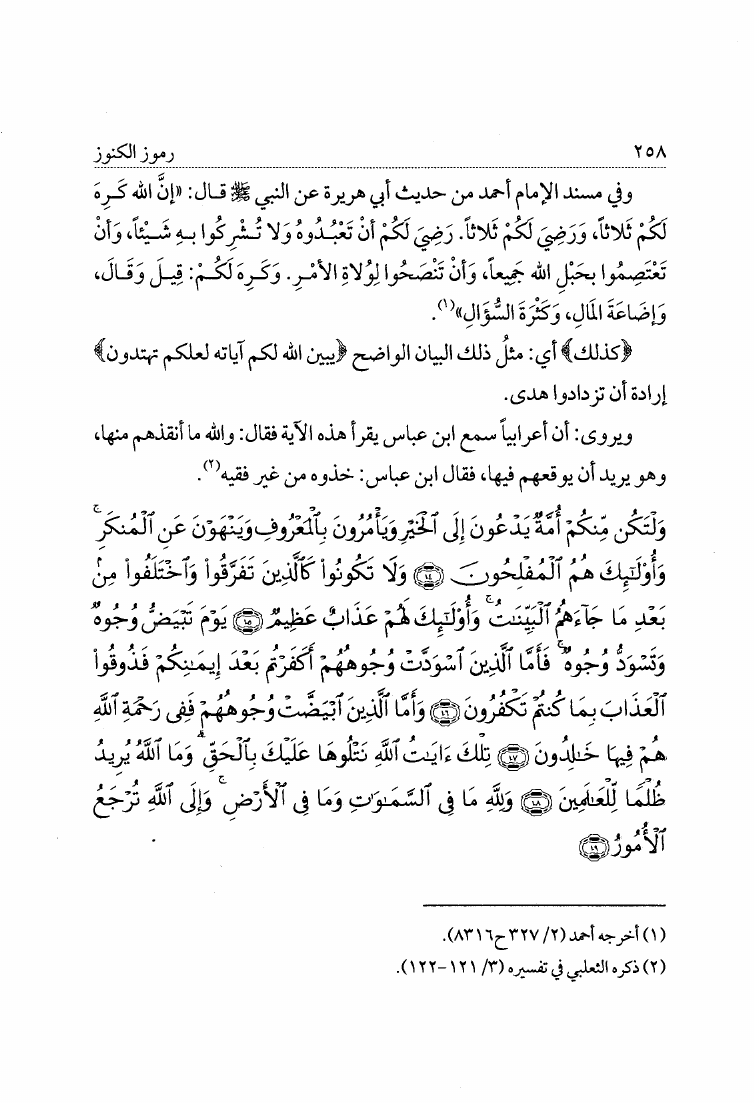 ٢٥٨ رموز الكنوز
وفي مسند الإمام أحمد من حديث أبي هريرة عن النبي ﷺ قال: «إنَّ الله كَرِهَ
لَكُمْ ثَلاثاً، وَرَضِيَ لَكُمْ ثَلاثاً. رَضِيَ لَكُمْ أنْ تَعْبُدُوهُ وَلا تُشْرِكُوا بهِ شَيْئاً، وَأنْ
تَعْتَصِمُوا بحَبْلِ الله جَمِيعاً، وَأنْ تَنْصَحُوا لِوُلاةِ الأمْرِ. وَكَرِهَ لَكُمْ: قِيلَ وَقَالَ،
وَإضَاعَةَ المَالِ، وَكَثْرَةَ السُّؤَالِ»(١).
﴿كذلك﴾ أي: مثلُ ذلك البيان الواضح ﴿يبين الله لكم آياته لعلكم تهتدون﴾
إرادة أن تزدادوا هدى.
ويروى: أن أعرابياً سمع ابن عباس يقرأ هذه الآية فقال: والله ما أنقذهم منها،
وهو يريد أن يوقعهم فيها، فقال ابن عباس: خذوه من غير فقيه(٢).
وَلْتَكُن مِّنكُمْ أُمَّةٌ يَدْعُونَ إِلَى ٱلْخَيْرِ وَيَأْمُرُونَ بِٱلْمَعْرُوفِ وَيَنْهَوْنَ عَنِ ٱلْمُنكَرِ ۚ
وَأُو۟لَـٰٓئِكَ هُمُ ٱلْمُفْلِحُونَ ﴿١٤﴾ وَلَا تَكُونُوا۟ كَٱلَّذِينَ تَفَرَّقُوا۟ وَٱخْتَلَفُوا۟ مِنۢ
بَعْدِ مَا جَآءَهُمُ ٱلْبَيِّنَـٰتُ ۚ وَأُو۟لَـٰٓئِكَ لَهُمْ عَذَابٌ عَظِيمٌ ﴿١٥﴾ يَوْمَ تَبْيَضُّ وُجُوهٌ
وَتَسْوَدُّ وُجُوهٌ ۚ فَأَمَّا ٱلَّذِينَ ٱسْوَدَّتْ وُجُوهُهُمْ أَكَفَرْتُم بَعْدَ إِيمَـٰنِكُمْ فَذُوقُوا۟
ٱلْعَذَابَ بِمَا كُنتُمْ تَكْفُرُونَ ﴿١٦﴾ وَأَمَّا ٱلَّذِينَ ٱبْيَضَّتْ وُجُوهُهُمْ فَفِى رَحْمَةِ ٱللَّهِ
هُمْ فِيهَا خَـٰلِدُونَ ﴿١٧﴾ تِلْكَ ءَايَـٰتُ ٱللَّهِ نَتْلُوهَا عَلَيْكَ بِٱلْحَقِّ ۗ وَمَا ٱللَّهُ يُرِيدُ
ظُلْمًا لِّلْعَـٰلَمِينَ ﴿١٨﴾ وَلِلَّهِ مَا فِى ٱلسَّمَـٰوَٰتِ وَمَا فِى ٱلْأَرْضِ ۚ وَإِلَى ٱللَّهِ تُرْجَعُ
ٱلْأُمُورُ ﴿١٩﴾
(١) أخرجه أحمد (٢/ ٣٢٧ ح٨٣١٦).
(٢) ذكره الثعلبي في تفسيره (٣/ ١٢١-١٢٢).